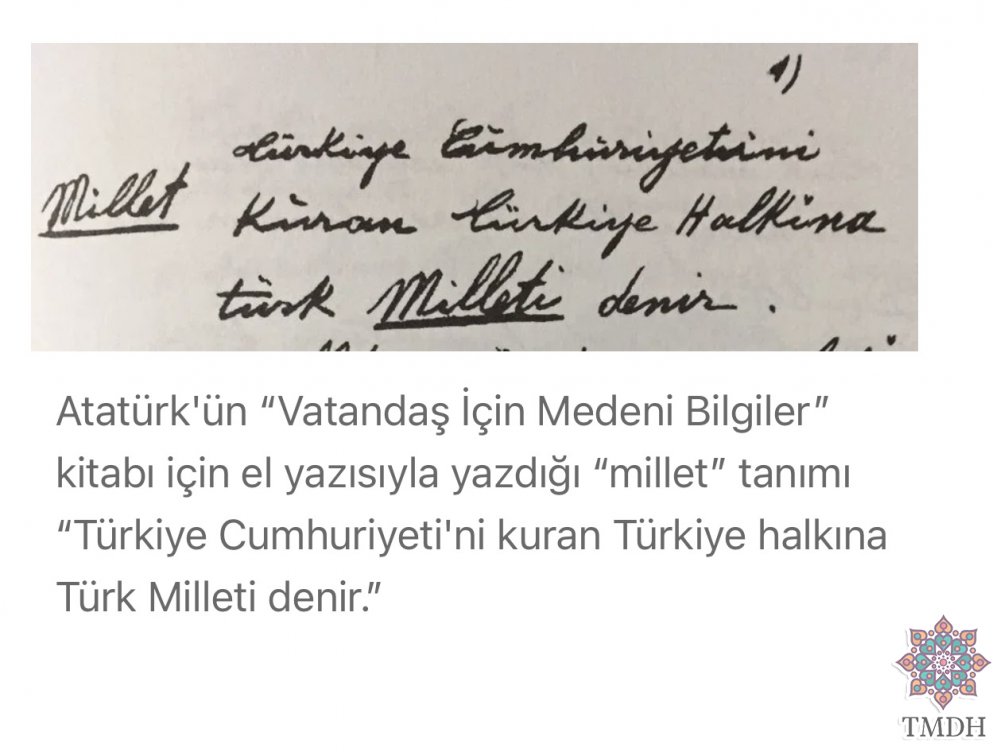 1)
Millet
türkiye Cümhüriyetini
Kuran türkiye Halkina
türk Milleti denir.
Atatürk'ün “Vatandaş İçin Medeni Bilgiler”
kitabı için el yazısıyla yazdığı “millet” tanımı
“Türkiye Cumhuriyeti'ni kuran Türkiye halkına
Türk Milleti denir.”
TMDH